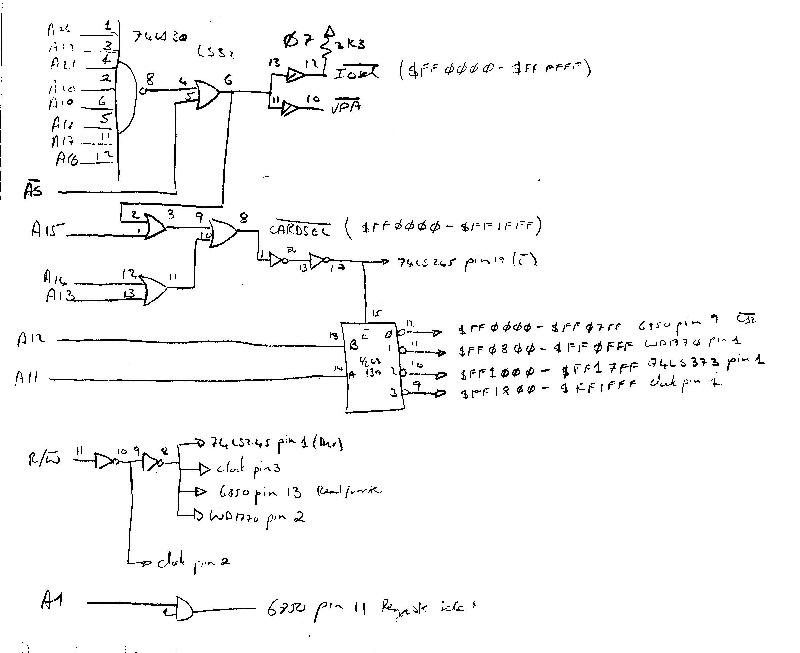 1 74LS30
3 LS32 Ø7
A21 4 2K3
8 4 6 13 12 IOSEL ($FFØØØØ-$FFFFFF)
2 5
A19 6 11 10 VPA
A18 5
A17 11
A16 12
AS
2 3 9 8 CARDSEL ($FFØØØØ-$FF1FFF)
A15 1 10
A14 12 11 13 12 74LS245 pin 19 (E)
A13 13
15
A12 13 B E 0 12 $FFØØØØ-$FFØ7FF 6850 pin 9 CS2
1 11 $FFØ8ØØ-$FFØFFF WD1770 pin 1
A11 14 A 2 10 $FF1ØØØ-$FF17FF 74LS373 pin 1
3 9 $FF18ØØ-$FF1FFF clock pin 1
R/W 11 10 9 8 74LS245 pin 1
clock pin 3
6850 pin 13 Read/write
WD1770 pin 2
clock pin 2
A1 6850 pin 11 Register